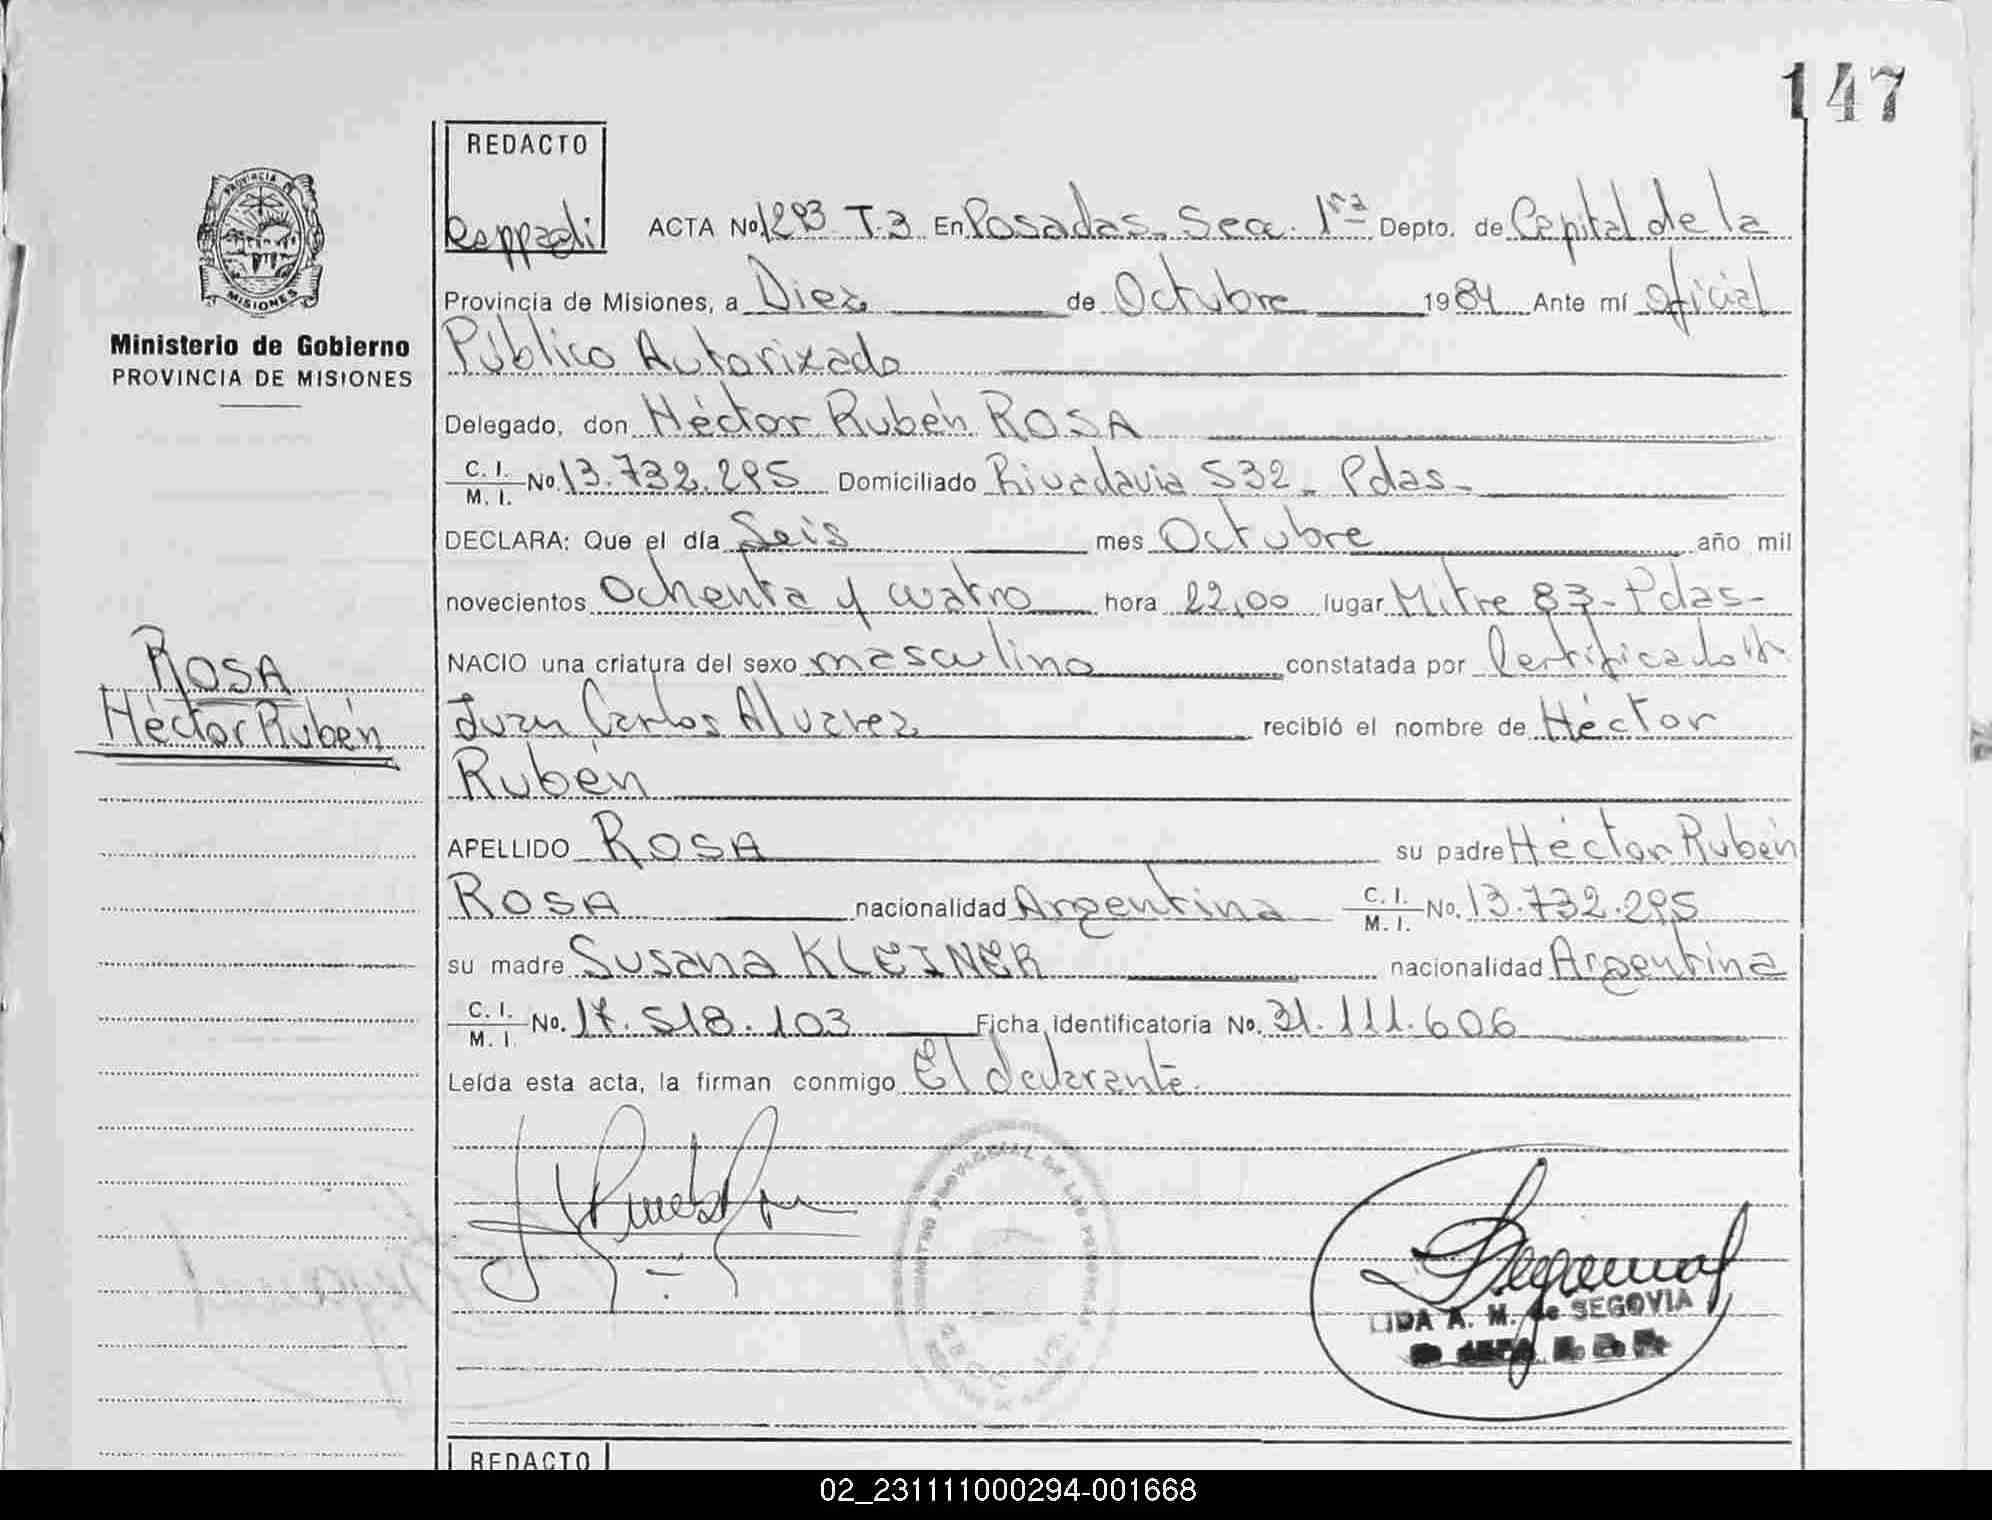 147
REDACTO
PROVINCIA DE
MISIONES
ACTA No 1293 T.3 En Posadas, Secc. 1ra Depto. de Capital de la
Provincia de Misiones, a Diez de Octubre 1984 Ante mí Oficial
Público Autorizado
Ministerio de Gobierno
PROVINCIA DE MISIONES
Delegado, don Héctor Rubén ROSA
C. I. M. I. No 13.732.295 Domiciliado Rivadavia 532 - Pdas -
DECLARA: Que el día Seis mes Octubre año mil
novecientos Ochenta y cuatro hora 22,00 lugar Mitre 83 - Pdas -
NACIO una criatura del sexo masculino constatada por Certificado
ROSA
Héctor Rubén
Juan Carlos Alvarez recibió el nombre de Héctor
Rubén
APELLIDO ROSA su padre Héctor Rubén
ROSA nacionalidad Argentina C. I. M. I. No. 13.732.295
su madre Susana KLEINER nacionalidad Argentina
C. I. M. I. No. 17.518.103 Ficha identificatoria No. 31.111.606
Leída esta acta, la firman conmigo El declarante.
PROVINCIAL DE LAS PERSONAS
LIDA A. M. de SEGOVIA
REDACTO
02_231111000294-001668